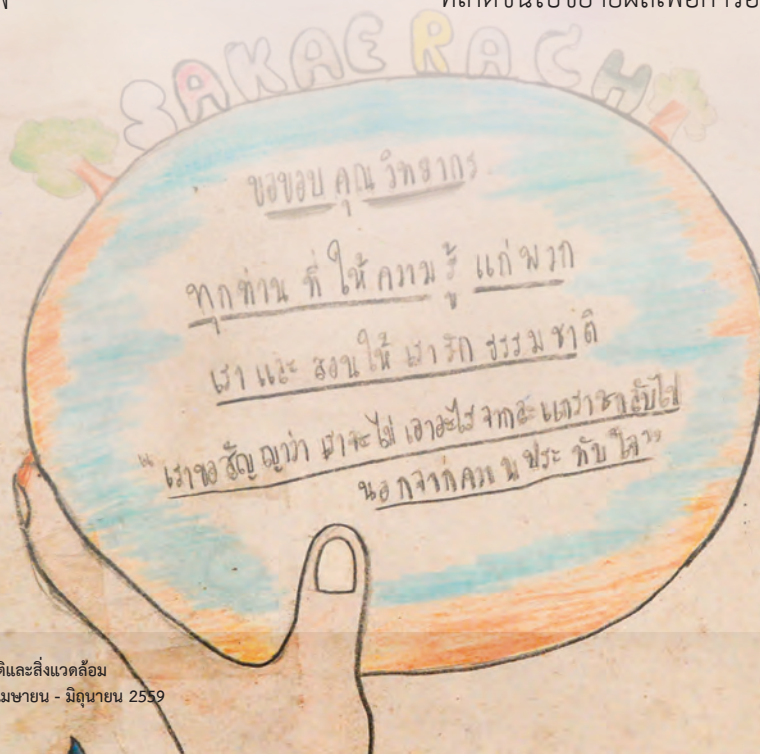 SAKAERACH
ขอขอบคุณวิทยากร
ทุกท่าน ที่ให้ความรู้ แก่พวก
เรา และ สอนให้ เรารัก ธรรมชาติ
"เราขอสัญญาว่า เราจะไม่ เอาอะไร จากสะแกราชกลับไป
นอกจากความประทับใจ"
ติและสิ่งแวดล้อม
มษายน - มิถุนายน 2559